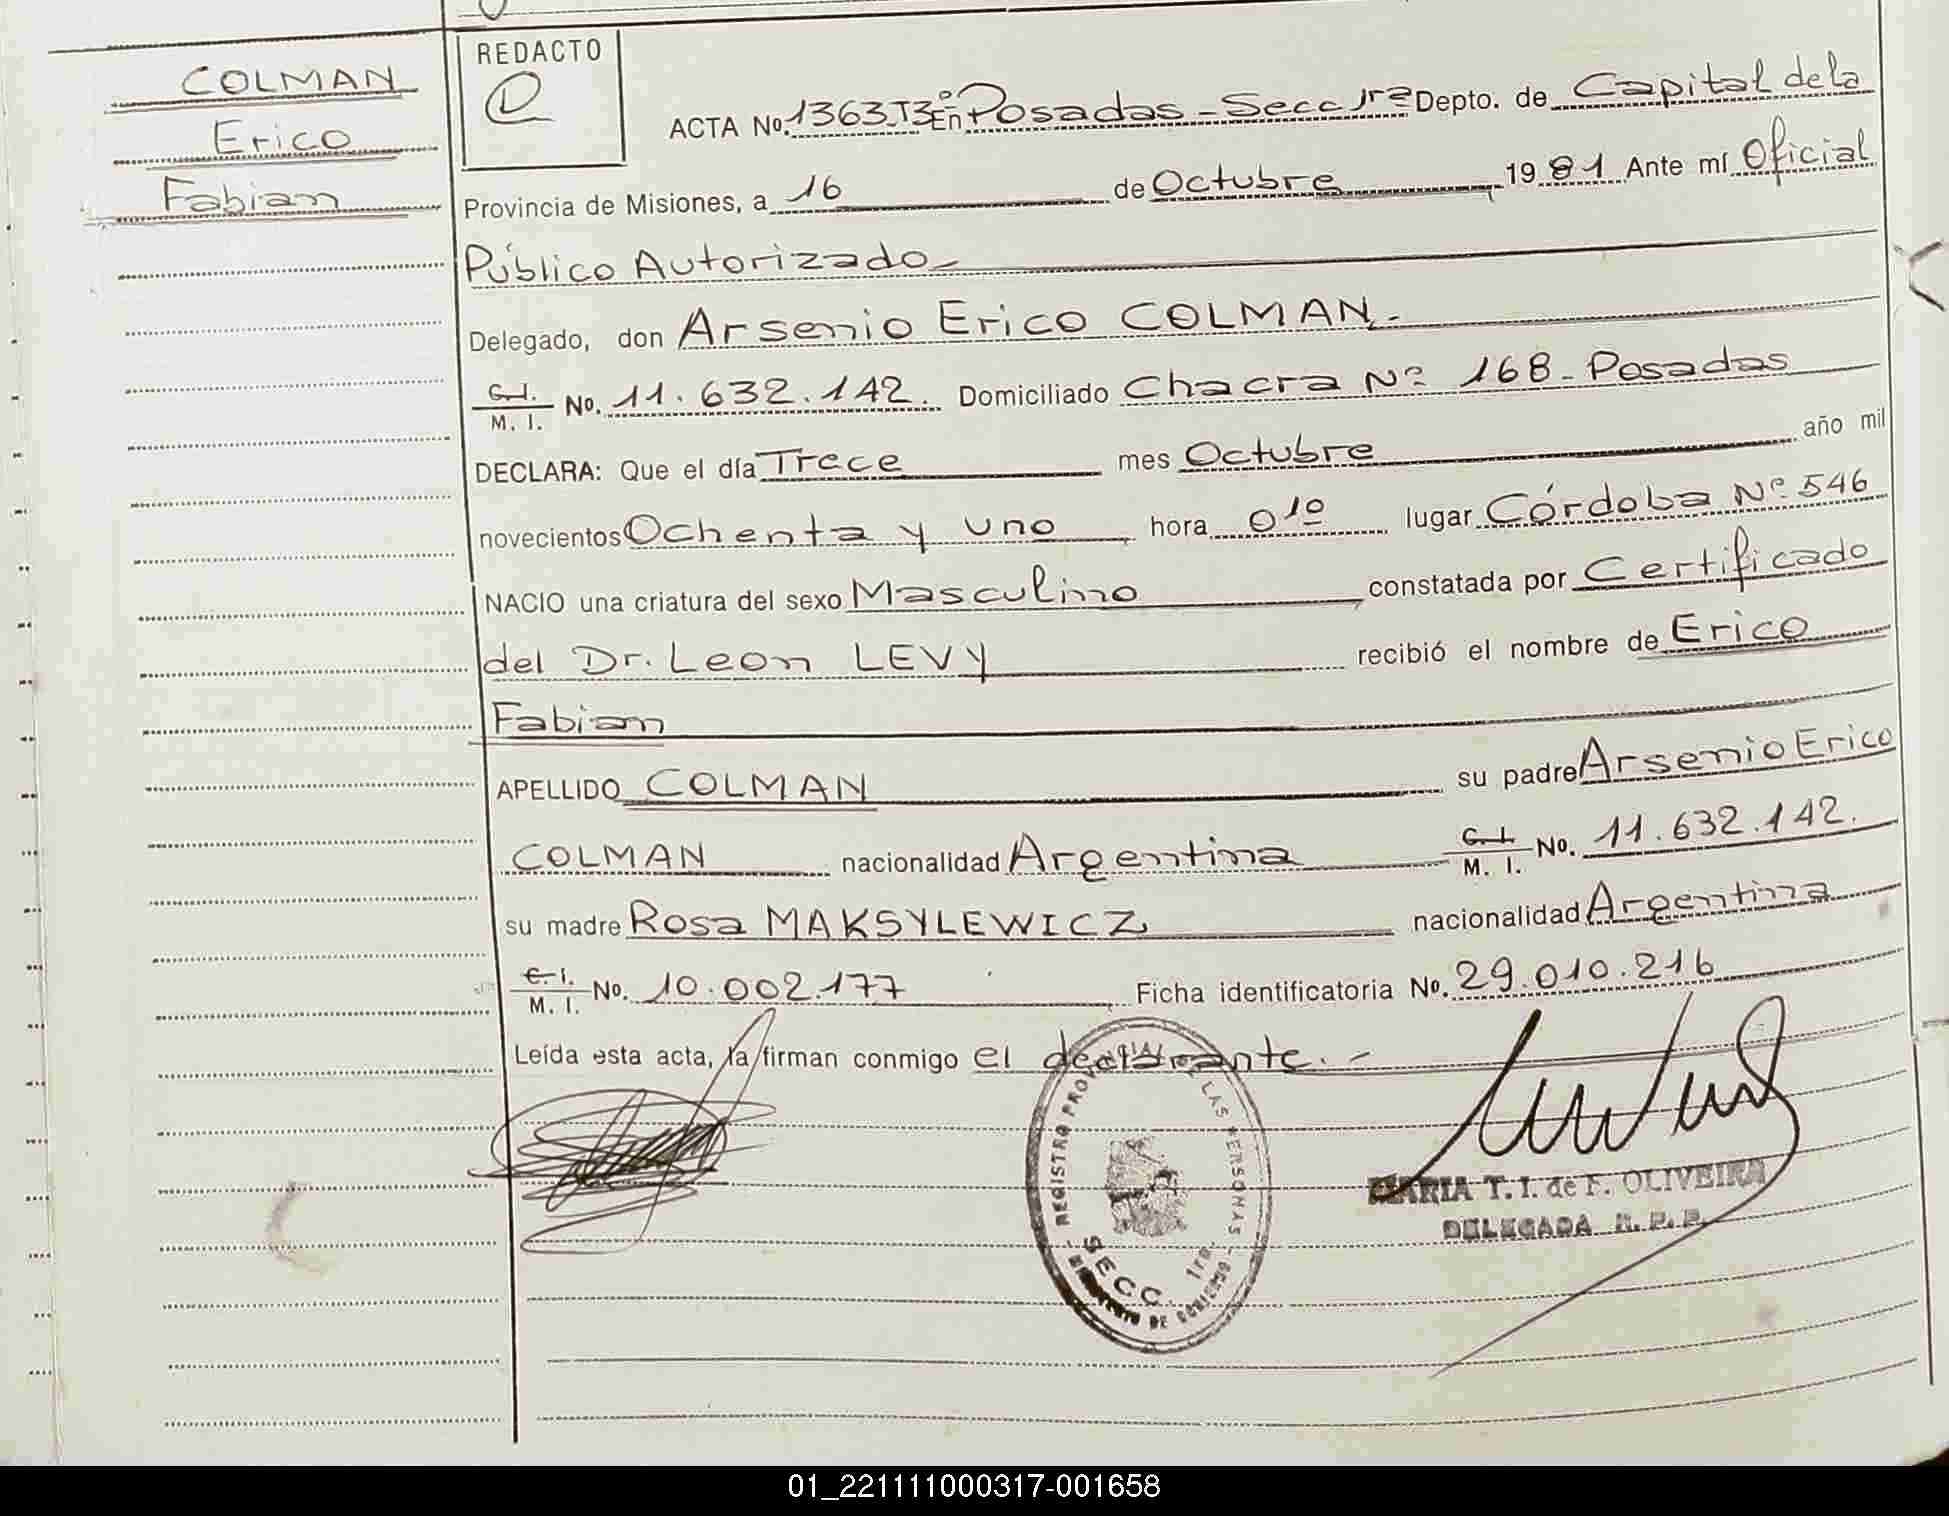 COLMAN
Erico
Fabian
REDACTO
ACTA No. 1363 T3º En Posadas - Secc 1ra Depto. de Capital de la
Provincia de Misiones, a 16 de Octubre 1981 Ante mí Oficial
Público Autorizado
Delegado, don Arsenio Erico COLMAN.-
C.I. M. I. No. 11.632.142. Domiciliado Chacra Nº 168 - Posadas
DECLARA: Que el día Trece mes Octubre año mil
novecientos Ochenta y uno hora 01º lugar Córdoba Nº 546
NACIO una criatura del sexo Masculino constatada por Certificado
del Dr. Leon LEVY recibió el nombre de Erico
Fabian
APELLIDO COLMAN su padre Arsenio Erico
COLMAN nacionalidad Argentina C.I. M. I. No. 11.632.142.
su madre Rosa MAKSYLEWICZ nacionalidad Argentina
C.I. M. I. No. 10.002.177 Ficha identificatoria No. 29.010.216
Leída esta acta, la firman conmigo el declarante.-
REGISTRO PROVINCIAL DE LAS PERSONAS
SECC. 1ra.
MARIA T. I. de F. OLIVEIRA
DELEGADA R. P. P.
01_221111000317-001658